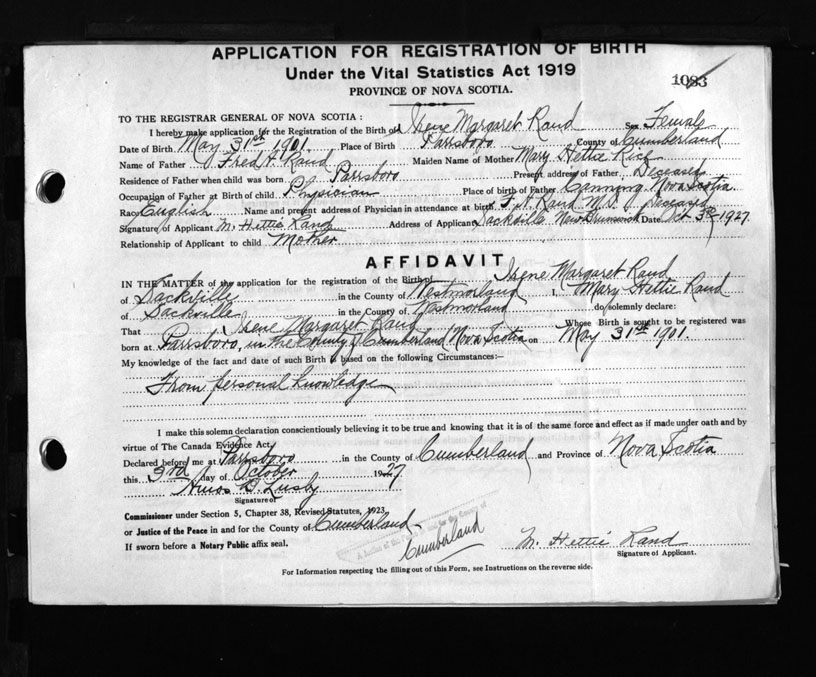 APPLICATION FOR REGISTRATION OF BIRTH
Under the Vital Statistics Act 1919
1083
PROVINCE OF NOVA SCOTIA.
TO THE REGISTRAR GENERAL OF NOVA SCOTIA :
I hereby make application for the Registration of the Birth of Irene Margaret Rand Sex Female
Date of Birth May 31st 1901. Place of Birth Parrsboro County of Cumberland
Name of Father Fred A Rand Maiden Name of Mother Mary Hettie Rick
Residence of Father when child was born Parrsboro Present address of Father Deceased
Occupation of Father at Birth of child Physician Place of birth of Father Canning Nova Scotia
Race English Name and present address of Physician in attendance at birth F. A. Rand M.D. Deceased
Signature of Applicant M. Hettie Rand Address of Applicant Sackville New Brunswick Date Oct 3rd 1927
Relationship of Applicant to child Mother
AFFIDAVIT
IN THE MATTER of the application for registration of the Birth of Irene Margaret Rand
of Sackville in the County of Westmorland I, Mary Hettie Rand
of Sackville in the County of Westmorland do solemnly declare:
That Irene Margaret Rand Whose Birth is sought to be registered was
born at Parrsboro, in the County of Cumberland Nova Scotia on May 31st 1901.
My knowledge of the fact and date of such Birth is based on the following Circumstances:—
From personal knowledge
I make this solemn declaration conscientiously believing it to be true and knowing that it is of the same force and effect as if made under oath and by
virtue of The Canada Evidence Act.
Declared before me at Parrsboro in the County of Cumberland and Province of Nova Scotia
this 3rd day of October 1927
Amos D Lusby
Signature of
Commissioner under Section 5, Chapter 38, Revised Statutes, 1923,
or Justice of the Peace in and for the County of Cumberland
If sworn before a Notary Public affix seal.
Cumberland
M. Hettie Rand
Signature of Applicant.
For Information respecting the filling out of this Form, see Instructions on the reverse side.